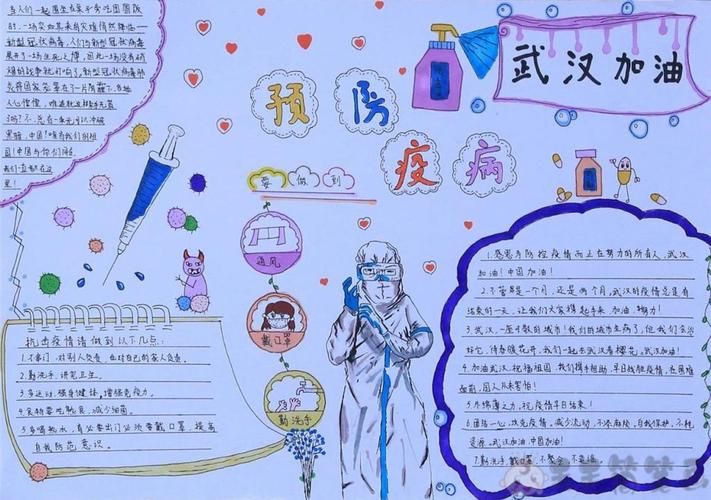 与人们一起围坐在桌子旁吃团圆饭
时,一场突如其来的灾难悄然降临—
新型冠状病毒,人们与新型冠状病毒
展开了一场生死之博,因此一场没有硝
烟的战争就打响了,新型冠状病毒肺
炎
武汉加油
预防
疫病
要做到
通风
戴口罩
勤洗手
抗击疫情请做到以下几点:
1.不串门,对别人负责,也对自己的家人负责。
2.勤洗手,讲究卫生。
3.多运动,强身健体,增强免疫力。
4.食物要吃熟食,减少细菌。
5.多喝热水,有必要出门必须要戴口罩,提高
自我防范意识。
1.感恩为防控疫情而正在努力的所有人,武汉
加油!中国加油!
2.不管是一个月,还是两个月,武汉的疫情总是有
结束的一天,让我们大家撑起手来,加油,努力!
3.武汉,一座才数的城市!我们的城市生病了,但我们会治
好它,待春暖花开,我们一起去武汉看樱花。武汉加油!
4.加油武汉,祝福祖国,我们携手相助,早日战胜疫情,在困难
面前,国人从来害怕!
5.尽绵薄之力,抗疫情早日结束!
6.团结一心,攻克疫情,减少流动,不添麻烦,自我保护,不耗
资源。武汉加油,中国加油!
7.勤洗手,戴口罩,不聚会,不串